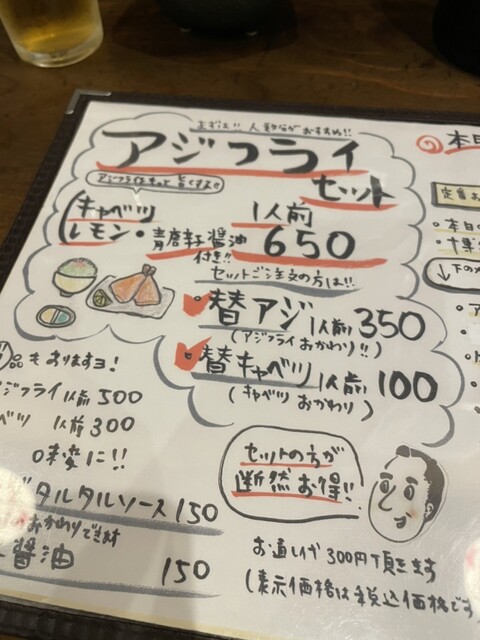 まずは!! 人数分がおすすめ!!
アジフライ
セット
アジフライをもっと旨くするよ!!
キャベツ
レモン・青唐辛子醤油
付き!!
1人前
650
セットご注文の方は!!
替アジ 1人前 350
(アジフライおかわり!!)
替キャベツ 1人前 100
(キャベツおかわり)
品もありますヨ!
ジフライ 1人前 500
ベツ 1人前 300
味変に!!
タルタルソース 150
おかわりできます
醤油 150
セットの方が
断然お得!!
お通し代 300円頂きます
(表示価格は税込価格です
本日
定番お
・本日の
・千葉
下の